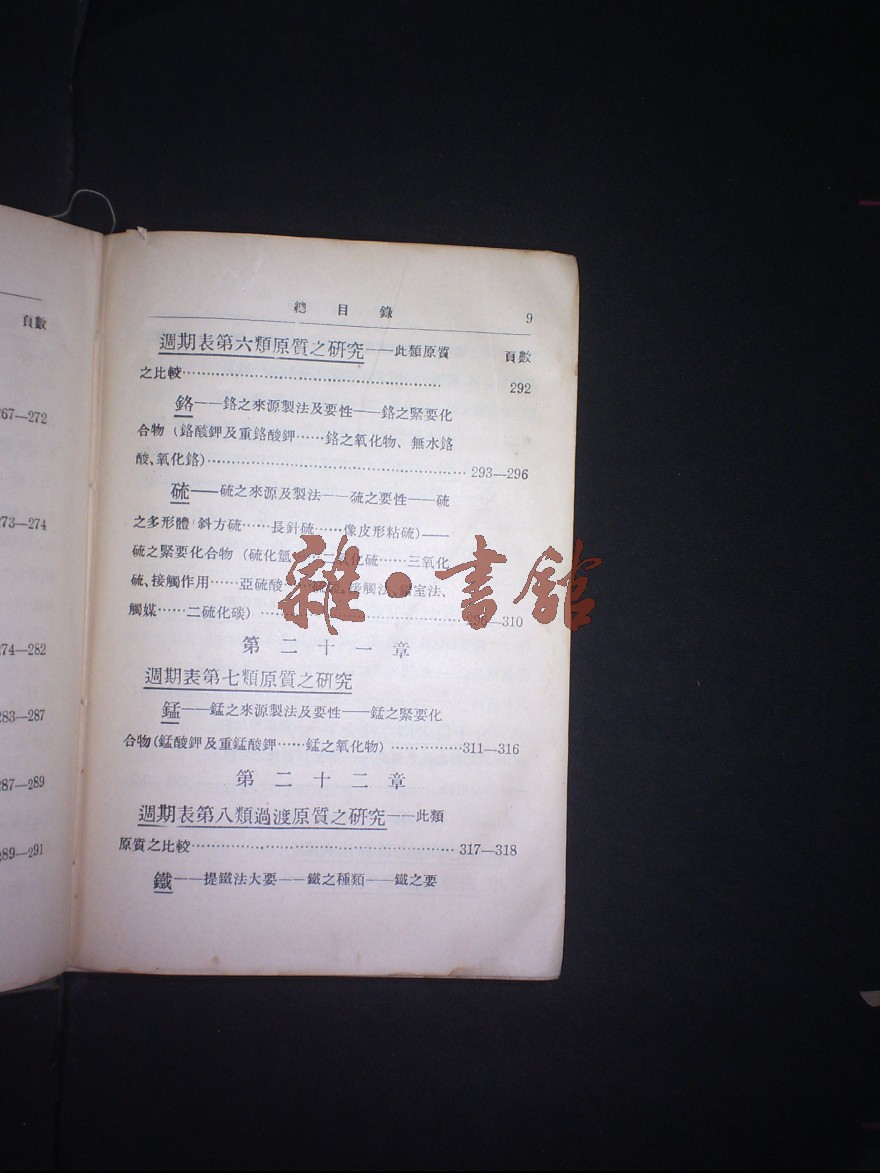 頁數
267—272
273—274
274—282
283—287
287—289
289—291
總目錄 9
週期表第六類原質之研究——此類原質 頁數
之比較…………………………………… 292
鉻——鉻之來源製法及要性——鉻之緊要化
合物(鉻酸鉀及重鉻酸鉀……鉻之氧化物、無水鉻
酸、氧化鉻)…………………………………… 293—296
硫——硫之來源及製法——硫之要性——硫
之多形體(斜方硫……長針硫……像皮形粘硫)——
硫之緊要化合物(硫化氫……二氧化硫……三氧化
硫、接觸作用……亞硫酸……硫酸、接觸法、鉛室法、
觸媒……二硫化碳)…………………………—310
第二十一章
週期表第七類原質之研究
錳——錳之來源製法及要性——錳之緊要化
合物(錳酸鉀及重錳酸鉀……錳之氧化物)……………311—316
第二十二章
週期表第八類過渡原質之研究——此類
原質之比較…………………………………… 317—318
鐵——提鐵法大要——鐵之種類——鐵之要
雜·書館